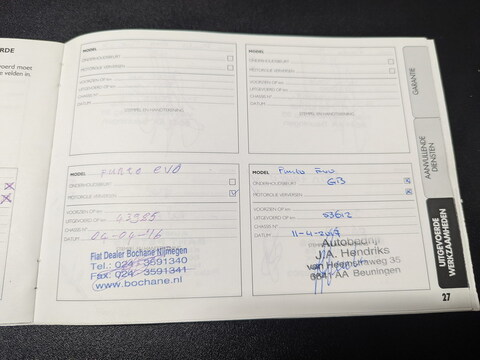 RDE
voerd moet
e velden in,
MODEL
ONDERHOUDSBEURT
MOTOROLIE VERVERSEN
VOORZIEN OP km
UITGEVOERD OP km
CHASSIS N°
DATUM
STEMPEL EN HANDTEKENING
MODEL
ONDERHOUDSBEURT
MOTOROLIE VERVERSEN
VOORZIEN OP km
UITGEVOERD OP km
CHASSIS N°
DATUM
STEMPEL EN HANDTEKENING
MODEL PUNTO EVO
ONDERHOUDSBEURT
MOTOROLIE VERVERSEN
VOORZIEN OP km
UITGEVOERD OP km 43985
CHASSIS N°
DATUM 04-04-'16
Fiat Dealer Bochane Nijmegen
Tel.: 024 3591340
Fax.: 024 3591341
www.bochane.nl
MODEL Punto Evo
ONDERHOUDSBEURT GB
MOTOROLIE VERVERSEN
VOORZIEN OP km
UITGEVOERD OP km 53612
CHASSIS N°
DATUM 11-4-
Autobedrijf
J.A. Hendriks
van Heemstraweg 35
6641 AA Beuningen
GARANTIE
AANVULLENDE
DIENSTEN
UITGEVOERDE
WERKZAAMHEDEN
27